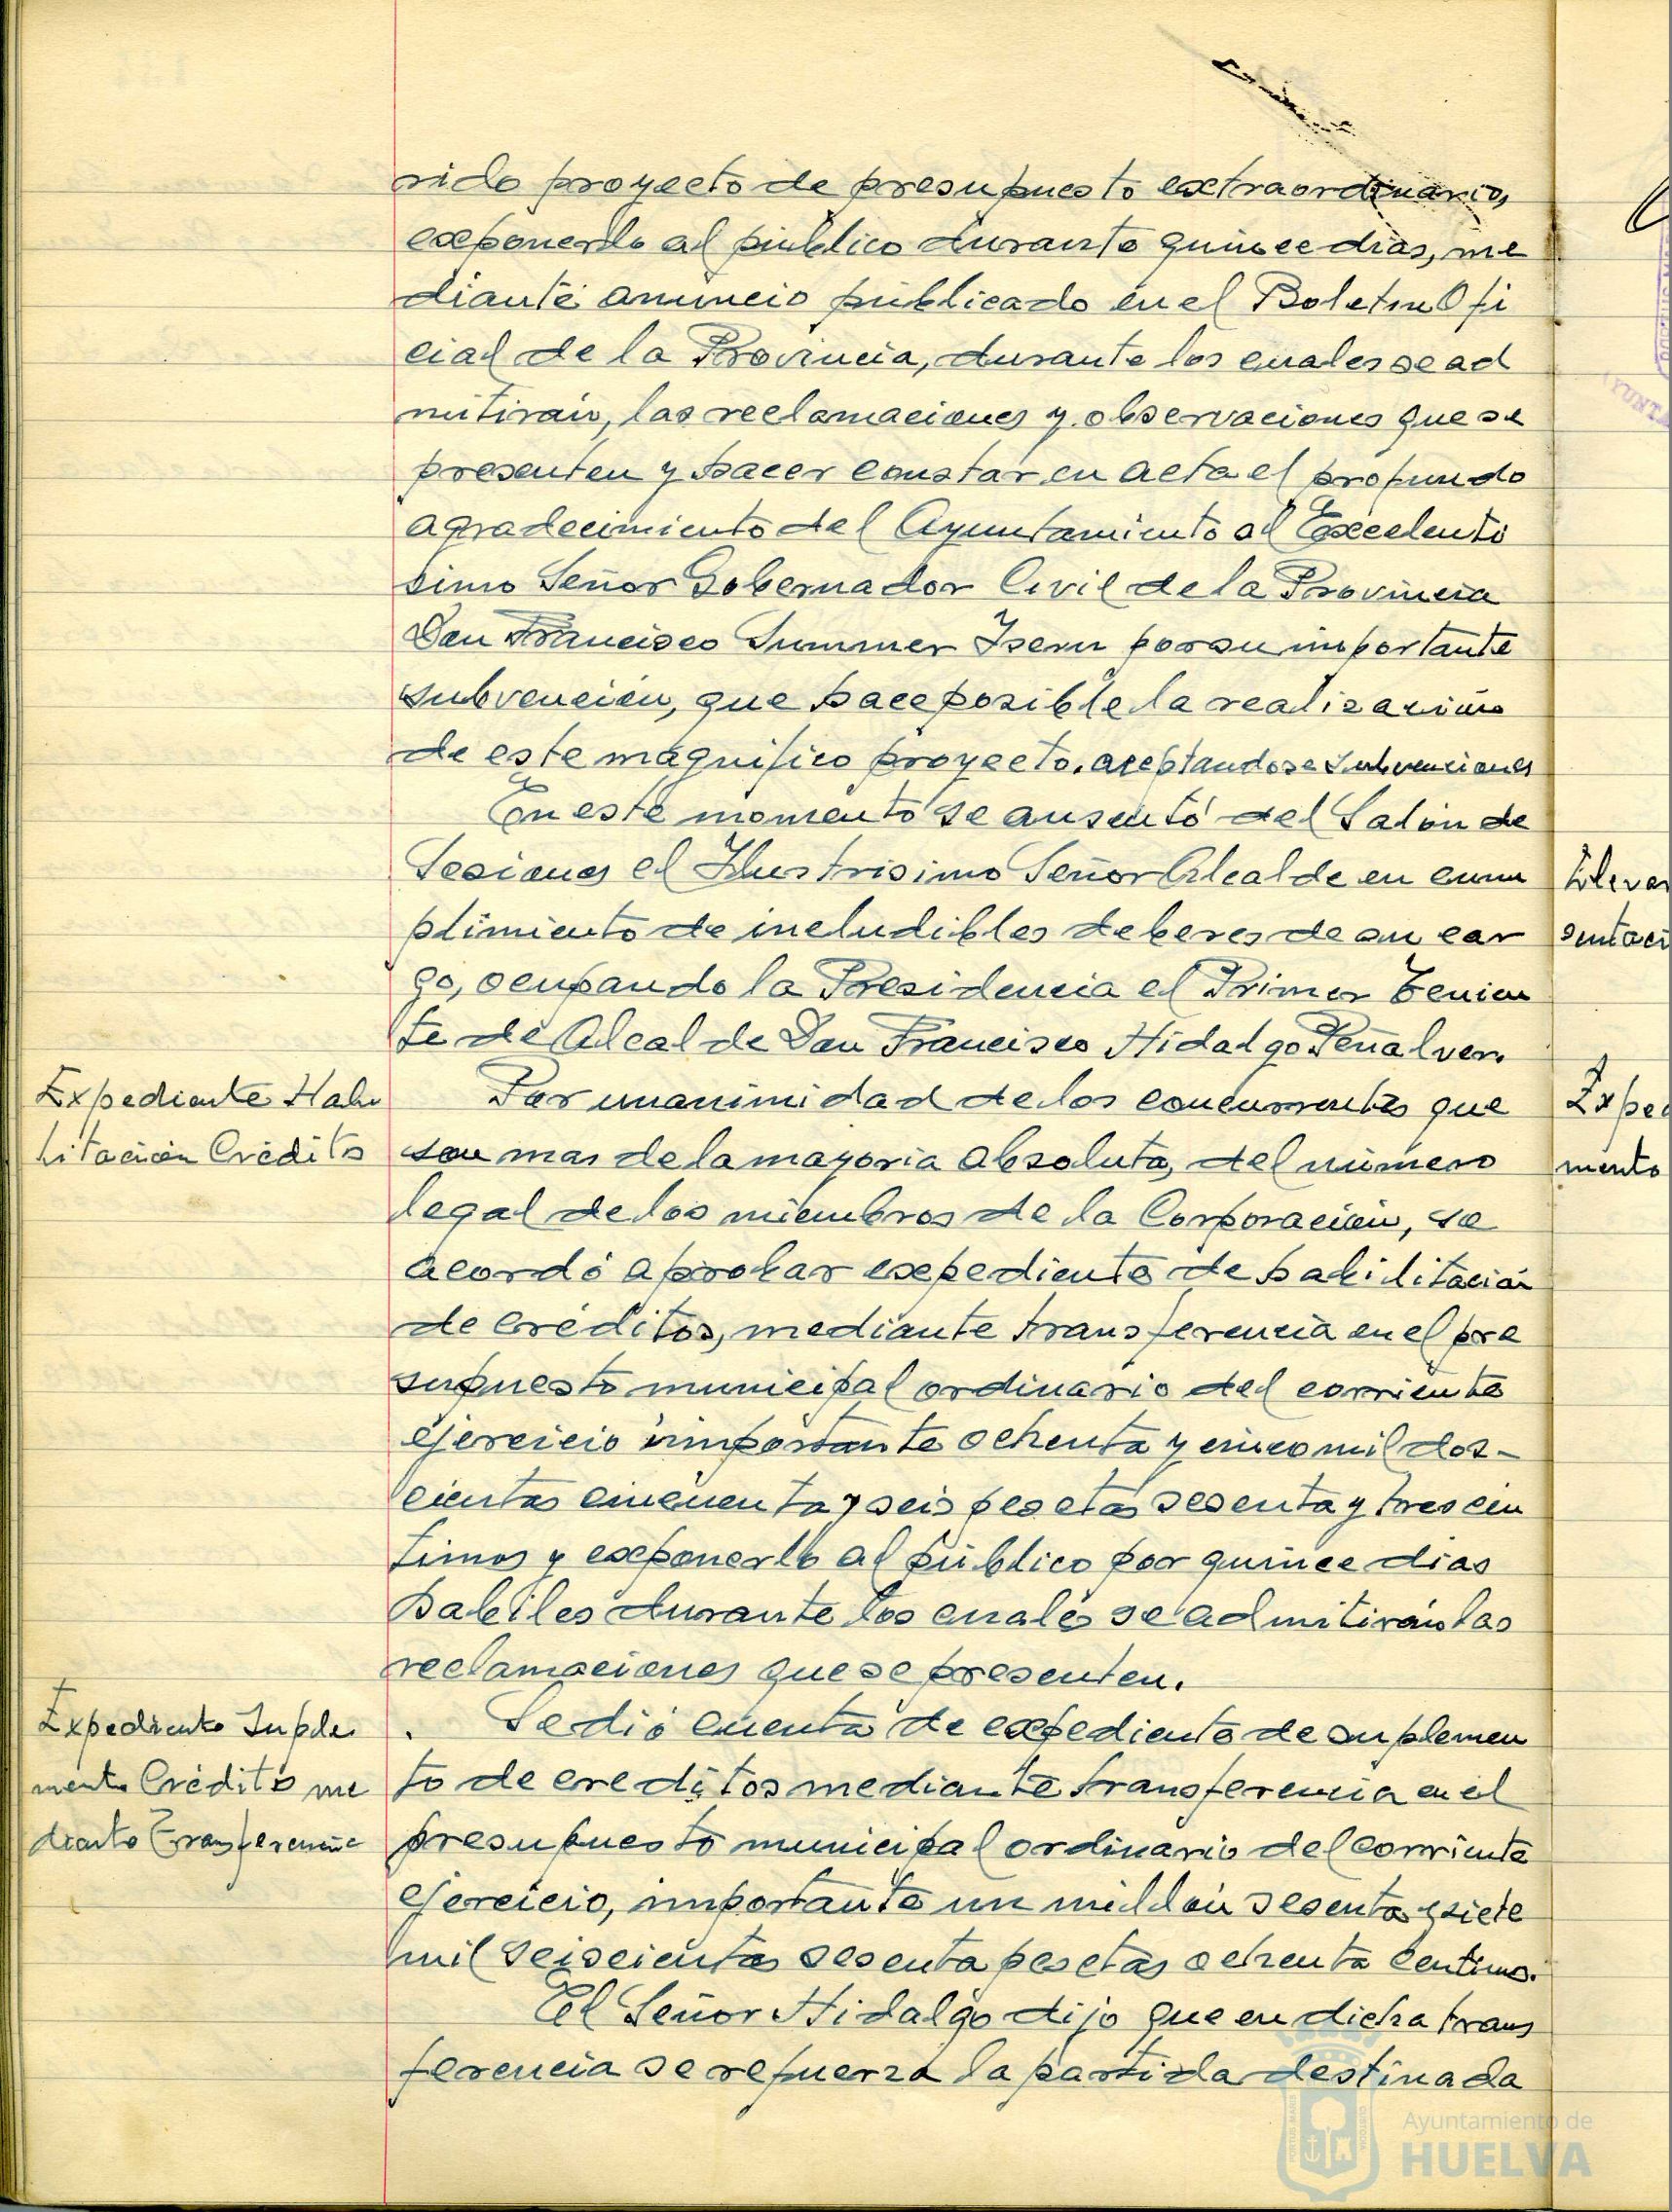 rido proyecto de presupuesto extraordinario,
exponerlo al público durante quince dias, me
diante anuncio públicado en el Boletin Ofi
cial de la Provincia, durante los cuales se ad
mitirán, las reclamaciones y observaciones que se
presenten y hacer constar en acta el profundo
agradecimiento del Ayuntamiento al Excelenti
simo Señor Gobernador Civil de la Provincia
Don Francisco Summer Isern por su importante
subvención, que hace posible la realización
de este magnifico proyecto. aceptandose subvenciones
En este momento se ausentó del Salón de
Sesiones el Ilustrisimo Señor Alcalde en cum
plimiento de includibles deberes de su car
go, ocupando la Presidencia el Primer Tenien
te de Alcalde Don Francisco Hidalgo Peñalver.
Expediente Habi
litación Crédito
Por unanimidad de los concurrentes que
son mas de la mayoria absoluta, del número
legal de los miembros de la Corporación, se
acordó aprobar expediente de habilitación
de créditos, mediante transferencia en el pre
supuesto municipal ordinario del corriente
ejercicio importante ochenta y cinco mil dos-
cientas cincuenta y seis pesetas sesenta y tres cén
timos y exponerlo al público por quince dias
habiles durante los cuales se admitirán las
reclamaciones que se presenten.
Expediente Suple
mento Crédito me
diante Transferencia
. Se dió cuenta de expediente de suplemen
to de creditos mediante transferencia en el
presupuesto municipal ordinario del corriente
ejercicio, importante un millón sesenta y siete
mil seiscientas sesenta pesetas ochenta centimos.
El Señor Hidalgo dijo que en dicha trans
ferencia se refuerza la partida destinada
Exped
mento
Ayuntamiento de
HUELVA